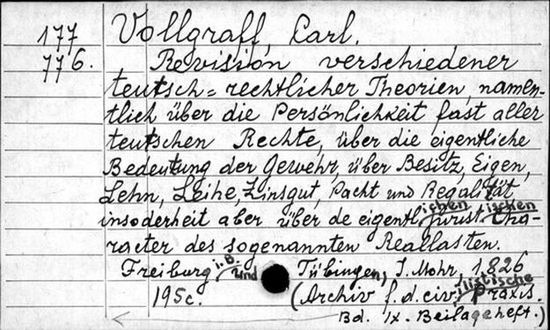 177
776.
Vollgraff, Carl.
Revision verschiedener
teutsch=rechtlicher Theorien, namen-
tlich über die Persönlichkeit fast aller
teutschen Rechte, über die eigentliche
Bedeutung der Gewehr, über Besitz, Eigen,
Lehn, Leihe, Zinsgut, Pacht und Regalität,
insoderheit aber über de eigentlichen juristischen Cha-
racter des sogenannten Reallasten.
Freiburg i.B. und Tübingen, J. Mohr, 1826
195c. (Archiv f. d. civilistische Praxis.
Bd. IX. Beilageheft.)